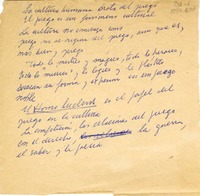 La cultura humana brota del juego
El juego es un fenómeno cultural
La cultura no comienza como
juego ni se origina del juego, sino que es,
más bien, juego
Todo lo místico y mágico, todo lo heroico,
todo lo musical, lo lógico y lo plástico
buscan su forma, y expresan en un juego
noble
El Homo Ludens es el papel del
juego en la cultura
La competición, las relaciones del juego
con el derecho, la guerra,
el saber y la poesía